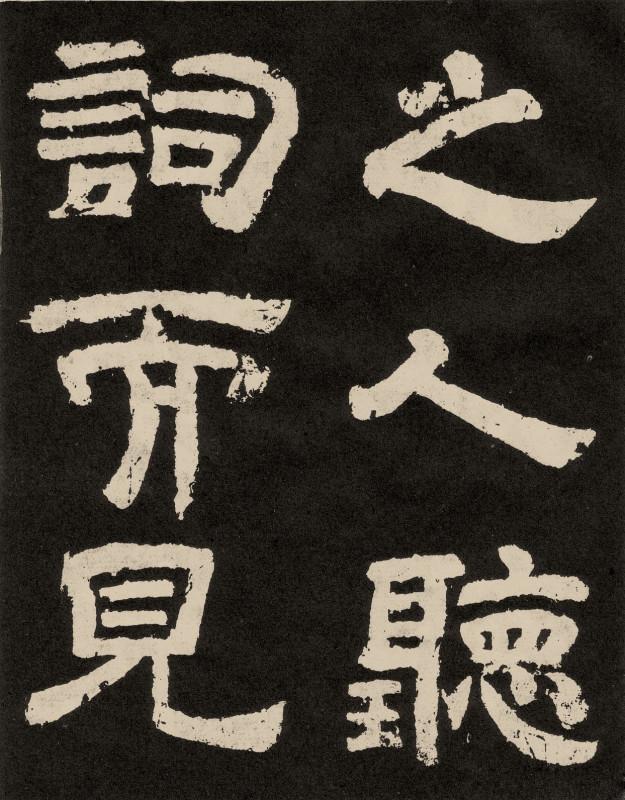 之人聽
詞而見